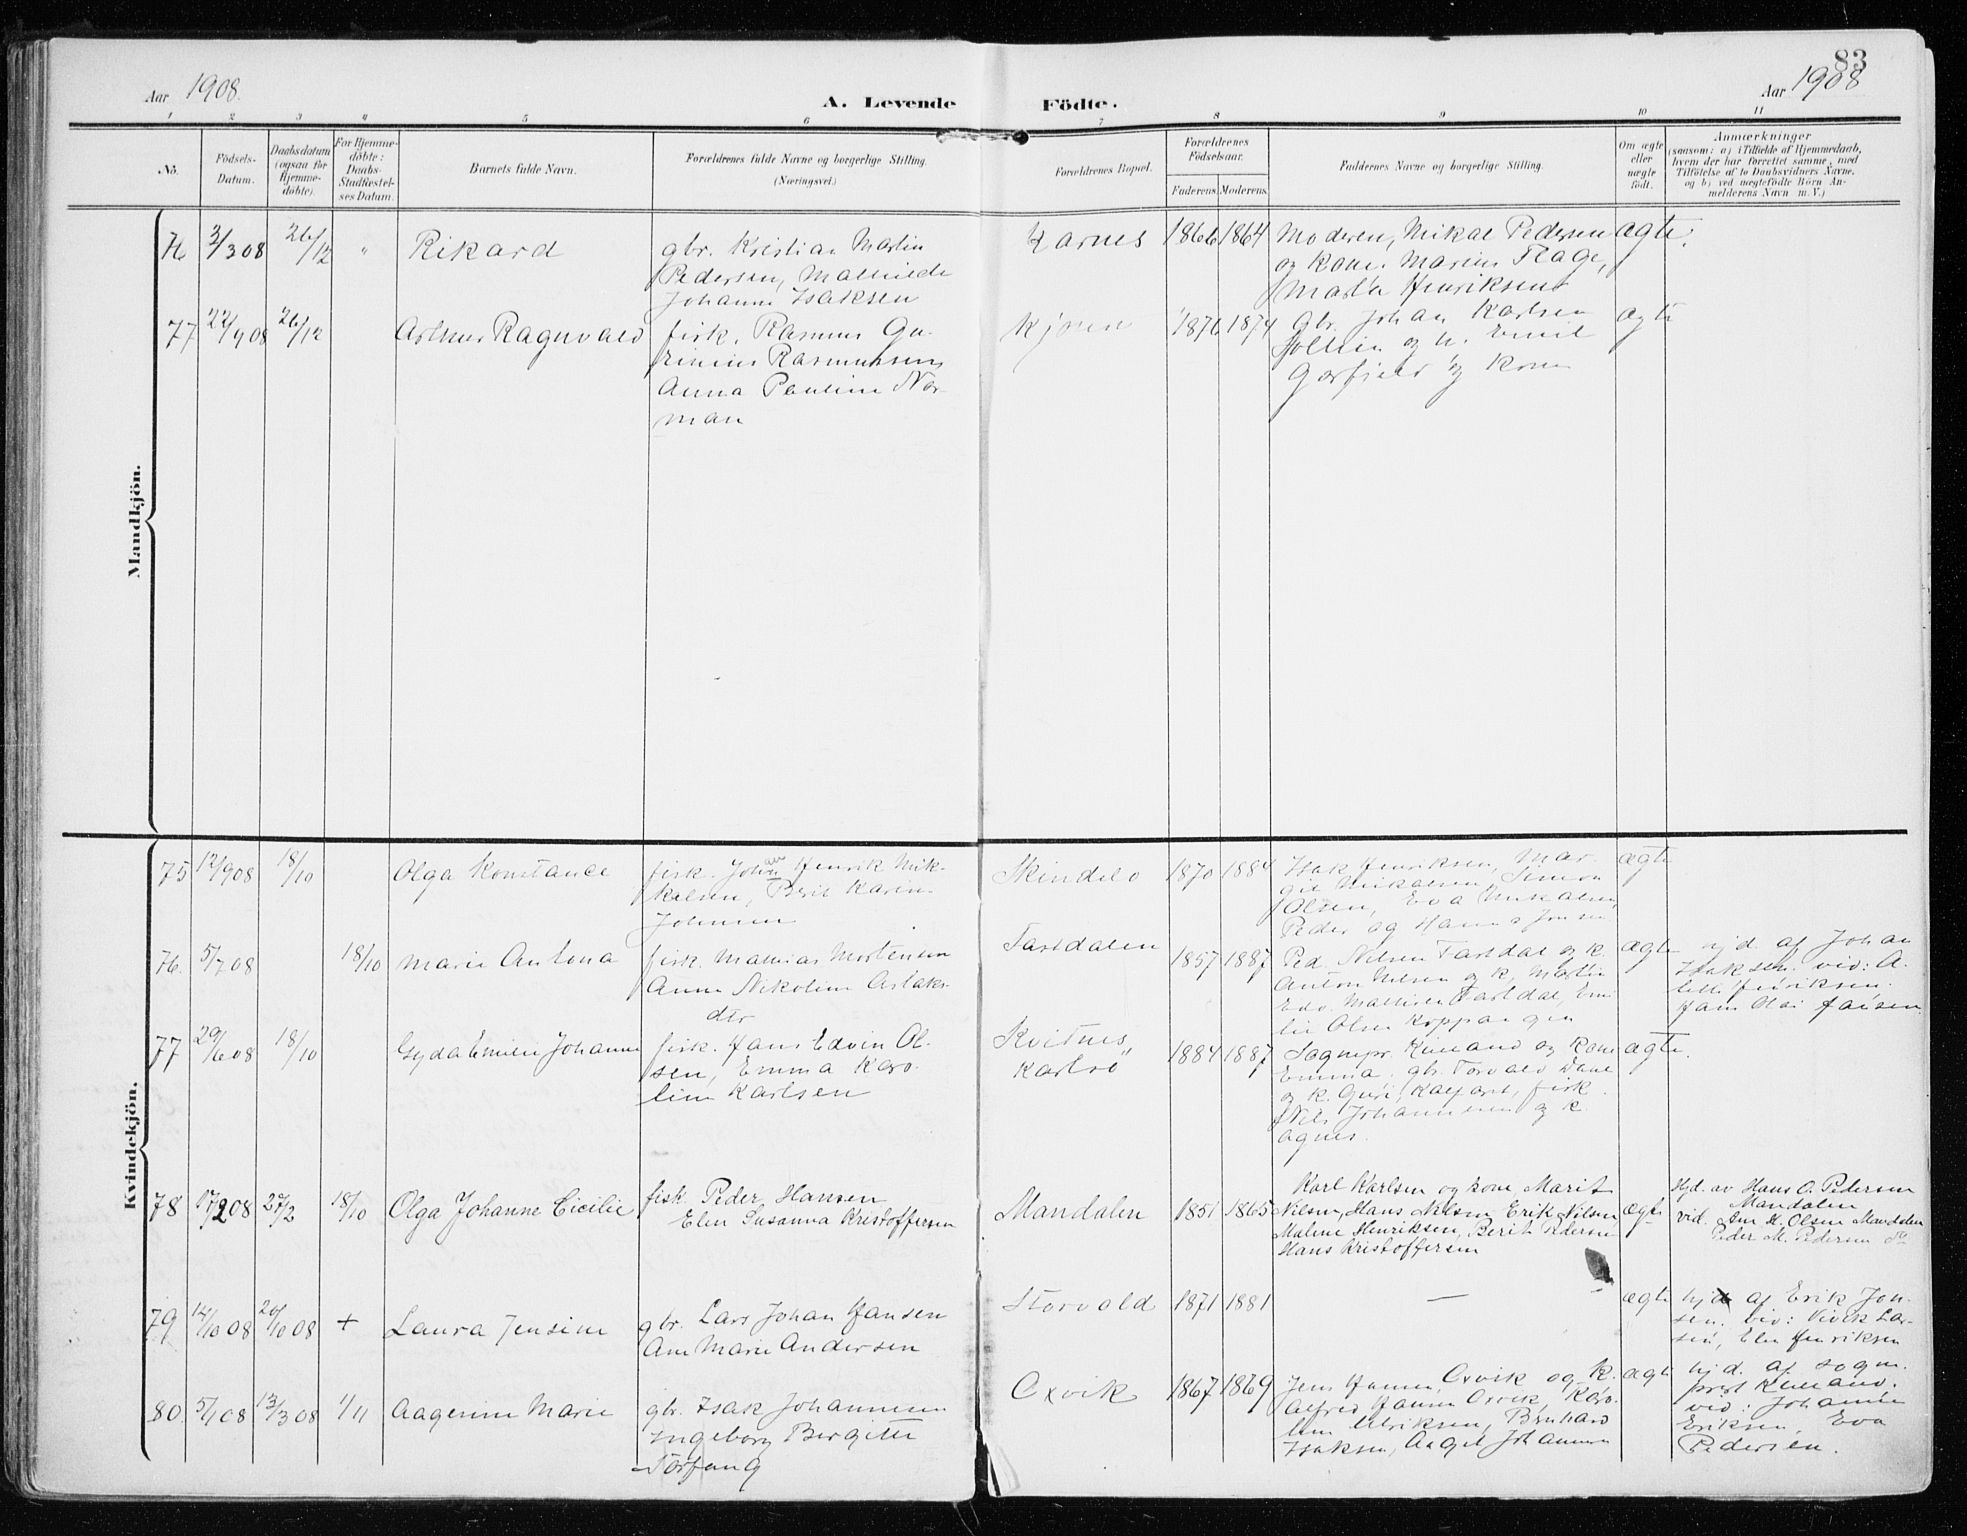 83
Aar 1908.
A. Levende Födte.
Aar 1908
1 2 3 4 5 6 7 8 9 10 11
No.
Födsels-
Datum.
Daabsdatum
(ogsaa for
Hjemme-
döbte).
For Hjemme-
döbte:
Daabs-
Stadfæstel-
ses Datum.
Barnets fulde Navn.
Forældrenes fulde Navne og borgerlige Stilling.
(Næringsvei.)
Forældrenes Bopæl.
Forældrenes
Födselsaar.
Faderens. Moderens.
Faddernes Navne og borgerlige Stilling.
Om ægte
eller
uægte
födt.
Anmærkninger
(saasom: a) i Tilfælde af Hjemmedaab,
hvem der har forrettet samme, med
Tilföielse af to Daabsvidners Navne,
og b) ved uægtefödte Börn An-
melderens Navn m. V.)
Mandkjön.
76 3/3 08 26/12 " Rikard
gbr. Kristian Martin
Pedersen, Mathilde
Johanne Isaksen
Karnes 1866 1864
Moderen, Mikal Pedersen
og kone, Marius Flage,
Martin Henriksen
ægte.
77 22/9 08 26/12 Arthur Ragnvald
fisk. Rasmus
Rasmussen,
Anna Pauline Nor-
man
1876 1874
Gbr. Johan Karlsen
og h. Emil
og kone
ægte
Kvindekjön.
75 12/9 08 18/10 Olga Konstance
fisk. Johan Henrik Mik-
kelsen, Berit Karin
Johnsen
Skindelv 1870 1884
Isak Henriksen, Mar-
git Mikalsen, Simon
Olsen, Eva Mikalsen,
Peder og Hanna Jonsen
ægte
76. 5/7 08 18/10 Marie Antona
fisk. Mathias Mortensen
Anne Nikoline Aslaks-
dtr
Fastdalen 1857 1887
Ped. Nilsen Fastdal og k.
Anton Nilsen og k, Martin
Edv. Mathisen Fastdal, Emi
lie Olsen Koppangen
ægte
hjd. af Johan
Isaksen. vid: A.
Hans Olai Jansen
77 29/6 08 18/10 Gyda Emilie Johanne
fisk. Hans Edvin Ol-
sen, Emma Karo-
line Karlsen
Kvitnes,
Karlsö
1884 1887
Sognepr. Kinland og kone
Emma. gbr. Torvald Dahl
og k. Guri, Kalfaret, fisk.
Nils Johannesen og k.
Agnes.
ægte.
78 17/2 08 27/2 18/10 Olga Johanne Cicilie
fisk Peder Hansen
Elen Susanna Kristoffersen
Mandalen 1851 1865
Karl Karlsen og kone, Marit
Nilsen, Hans Nilsen Erik Nilsen,
Malene Henriksen, Berit Pedersen
Hans Kristoffersen
ægte
Hjd. av Hans O. Pedersen
Mandalen
vid. H. Olsen Mandalen
Peder M. Pedersen do
79 14/10 08 20/10 08 + Laura Jensine
gbr. Lars Johan Hansen
Ane Marie Andersen
Storvold 1871 1881 —
ægte
hjd af Erik Jon-
sen. vid: Lar-
sen, Elen Henriksen
80. 5/1 08 13/3 08 1/11 Aagerine Marie
gbr. Isak Johannesen
Ingeborg Birgitte
Sörfang
Oxvik 1867 1869
Jens Hansen, Oxvik og k.
Alfred Hansen Oxvik, Karo-
line Ulriksen, Bernhard
Isaksen, Aaget Johannesen
ægte
hjd. af sogne-
prest Kinland.
vid: Johannes
Eriksen, Eva
Pedersen.